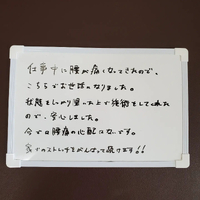 仕事中に腰が痛くなってきたので、
こちらでお世話になりました。
状態をしっかり習った上で施術をしてくれた
ので、安心しました。
今では腰痛の心配なしです。
家でのストレッチもがんばって続けます!!